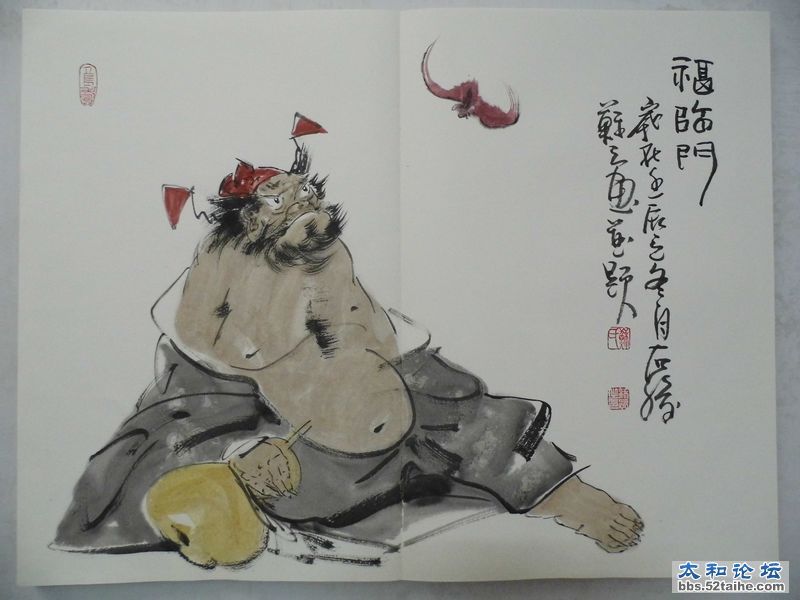 福臨門
歲在壬辰之冬月
畫並題
太和论坛
bbs.52taihe.com